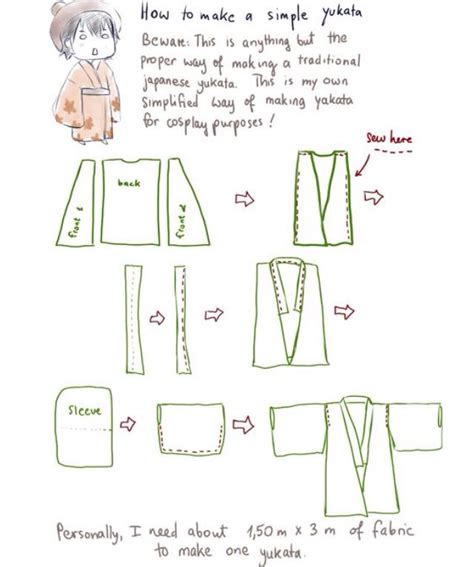 How to make a simple yukata
Beware: This is anything but the
proper way of making a traditional
japanese yukata. This is my own
simplified way of making yakata
for cosplay purposes!
sew here
front 1
back
front 2
Sleeve
Personally, I need about 1,50 m x 3 m of fabric
to make one yukata.